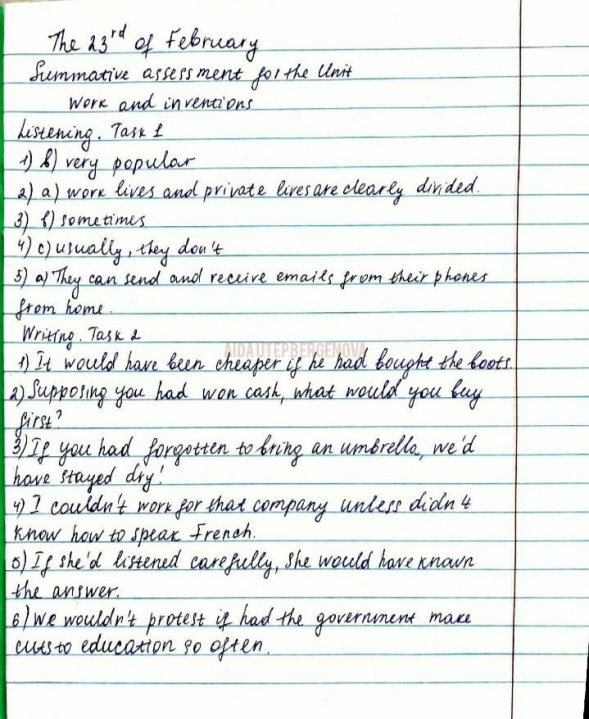 The 23rd of February
Summative assessment for the Unit
Work and inventions
Listening. Task 1
1) b) very popular
2) a) work lives and private lives are clearly divided.
3) b) sometimes
4) c) usually, they don't
5) a) They can send and receive emails from their phones
from home.
Writing. Task 2
AIDAUTEPBERGENOVA
1) It would have been cheaper if he had bought the boots.
2) Supposing you had won cash, what would you buy
first?
3) If you had forgotten to bring an umbrella, we'd
have stayed dry!
4) I couldn't work for that company unless didn't
know how to speak French.
5) If she'd listened carefully, she would have known
the answer.
6) We wouldn't protest if had the government make
cuts to education so often.